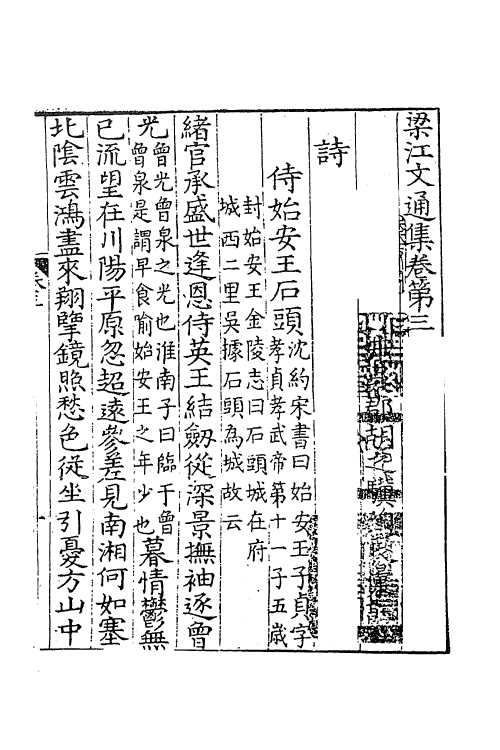 梁江文通集卷第三
胡之驥
詩
侍始安王石頭沈約宋書曰始安王子貞字
孝貞孝武帝第十一子五歲
封始安王金陵志曰石頭城在府
城西二里吳據石頭為城故云
緒官承盛世逢恩侍英王結劒從深景撫袖逐曾
光曾光曾泉之光也淮南子曰臨于曾
曾泉是謂早食喻始安王之年少也暮情鬱無
已流望在川陽平原忽超遠參差見南湘何如塞
北陰雲鴻盡來翔攣鏡照愁色從坐引憂方山中